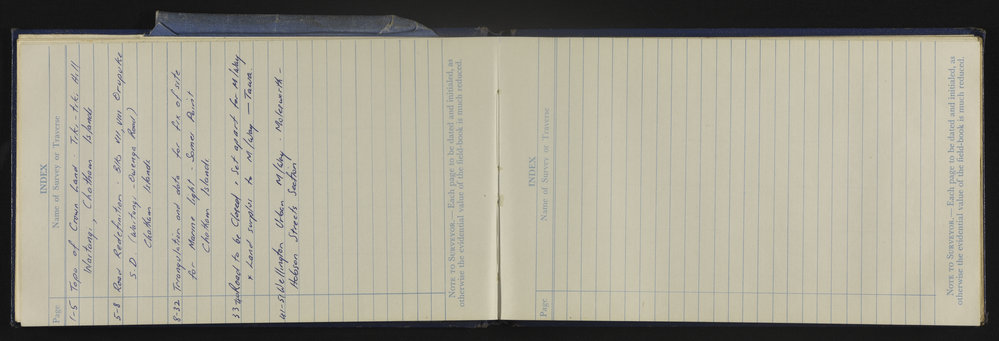 INDEX
Page Name of Survey or Traverse
1-5 Topo of Crown Land - Tiki-tiki Hill
Waitangi, Chatham Islands
5-8 Road Redefinition - Blks VII, VIII Oropuke
S.D. (Waitangi - Owenga Road)
Chatham Islands
8-32 Triangulation and data for fix of site
for Marine light - Somes Point
Chatham Islands
Road to be Closed, Set apart for M/Way
+ Land surplus to M/Way - Tawa.
41-51 Wellington Urban M/Way - Molesworth -
Hobson Streets Section
NOTE TO SURVEYOR.— Each page to be dated and initialed, as
otherwise the evidential value of the field-book is much reduced.
INDEX
Page Name of Survey or Traverse
NOTE TO SURVEYOR.— Each page to be dated and initialed, as
otherwise the evidential value of the field-book is much reduced.